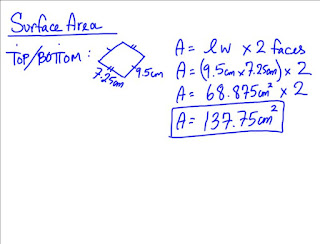 Surface Area
Top/Bottom:
7.25cm
9.5cm
A = lw x 2 faces
A = (9.5cm x 7.25cm) x 2
A = 68.875cm² x 2
A = 137.75cm²